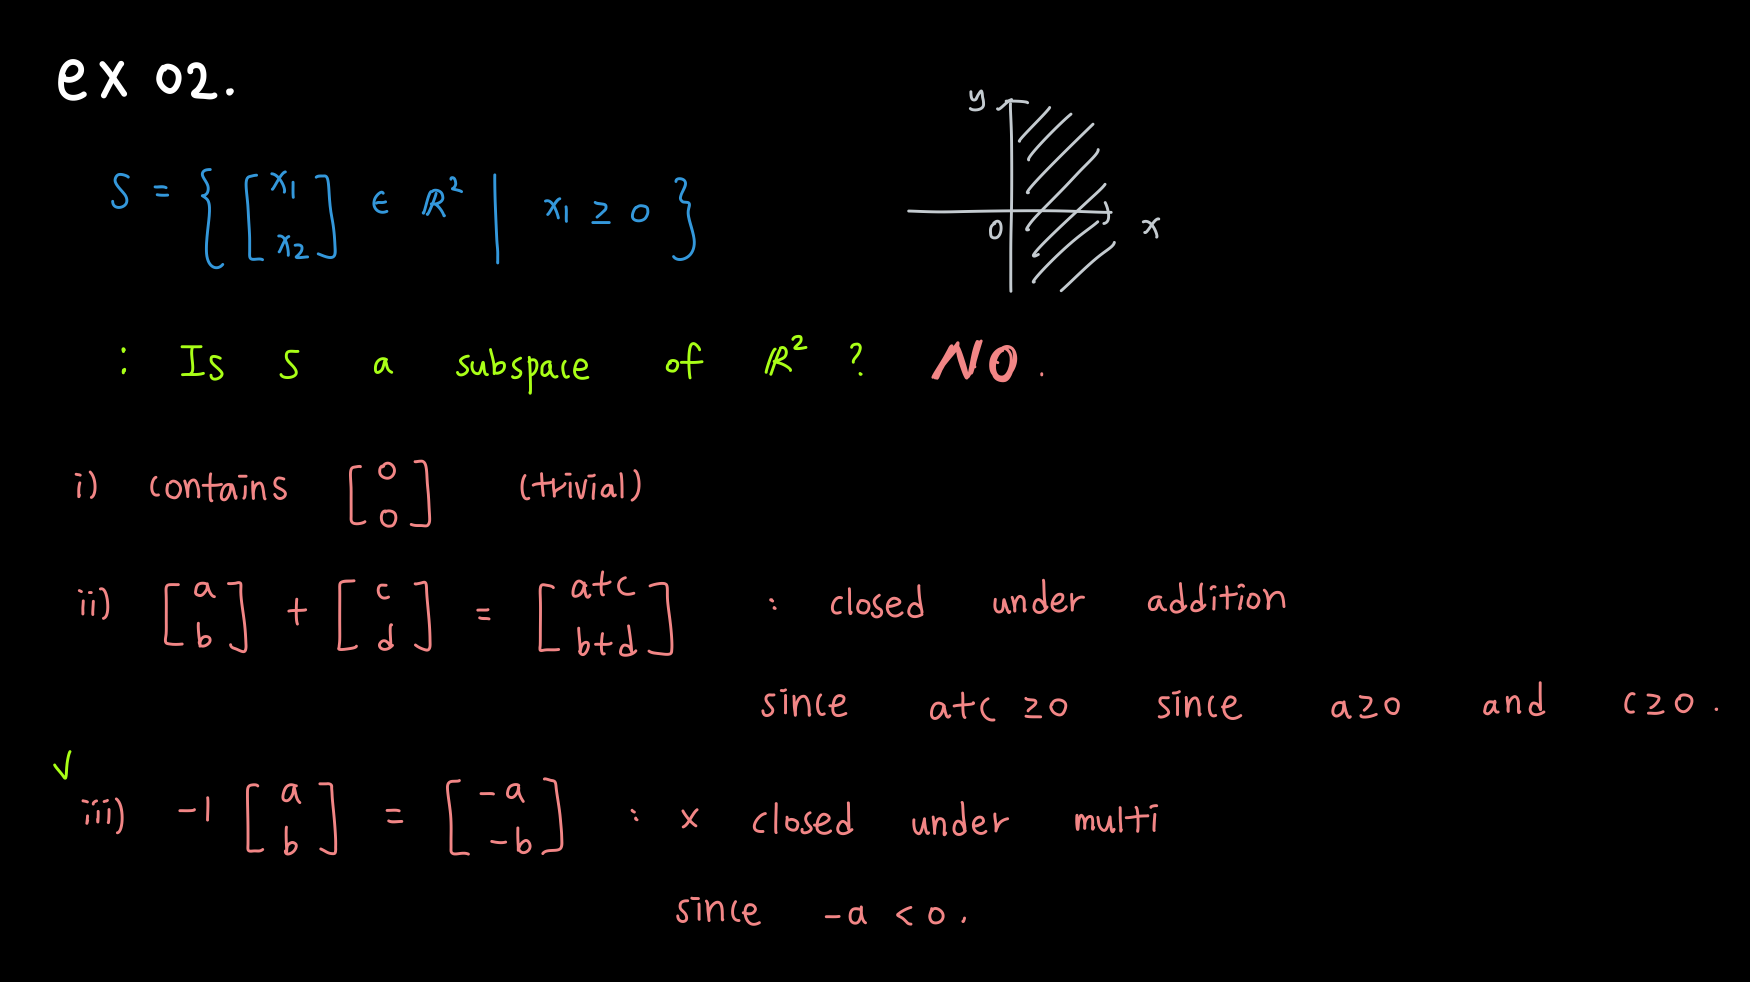 ex 02.
S = { [x₁ x₂] ∈ ℝ² | x₁ ≥ 0 }
y
0
x
: Is S a subspace of ℝ² ? NO.
i) contains [0 0] (trivial)
ii) [a b] + [c d] = [a+c b+d] : closed under addition
since a+c ≥0 since a≥0 and c≥0.
✓
iii) -1 [a b] = [-a -b] : x closed under multi
since -a < 0.